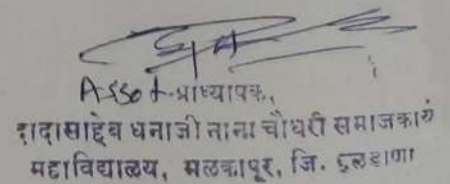 Assot-प्राध्यापक,
दादासाहेब धनाजी नाना चौधरी समाजकार्य
महाविद्यालय, मलकापूर, जि. बुलडाणा